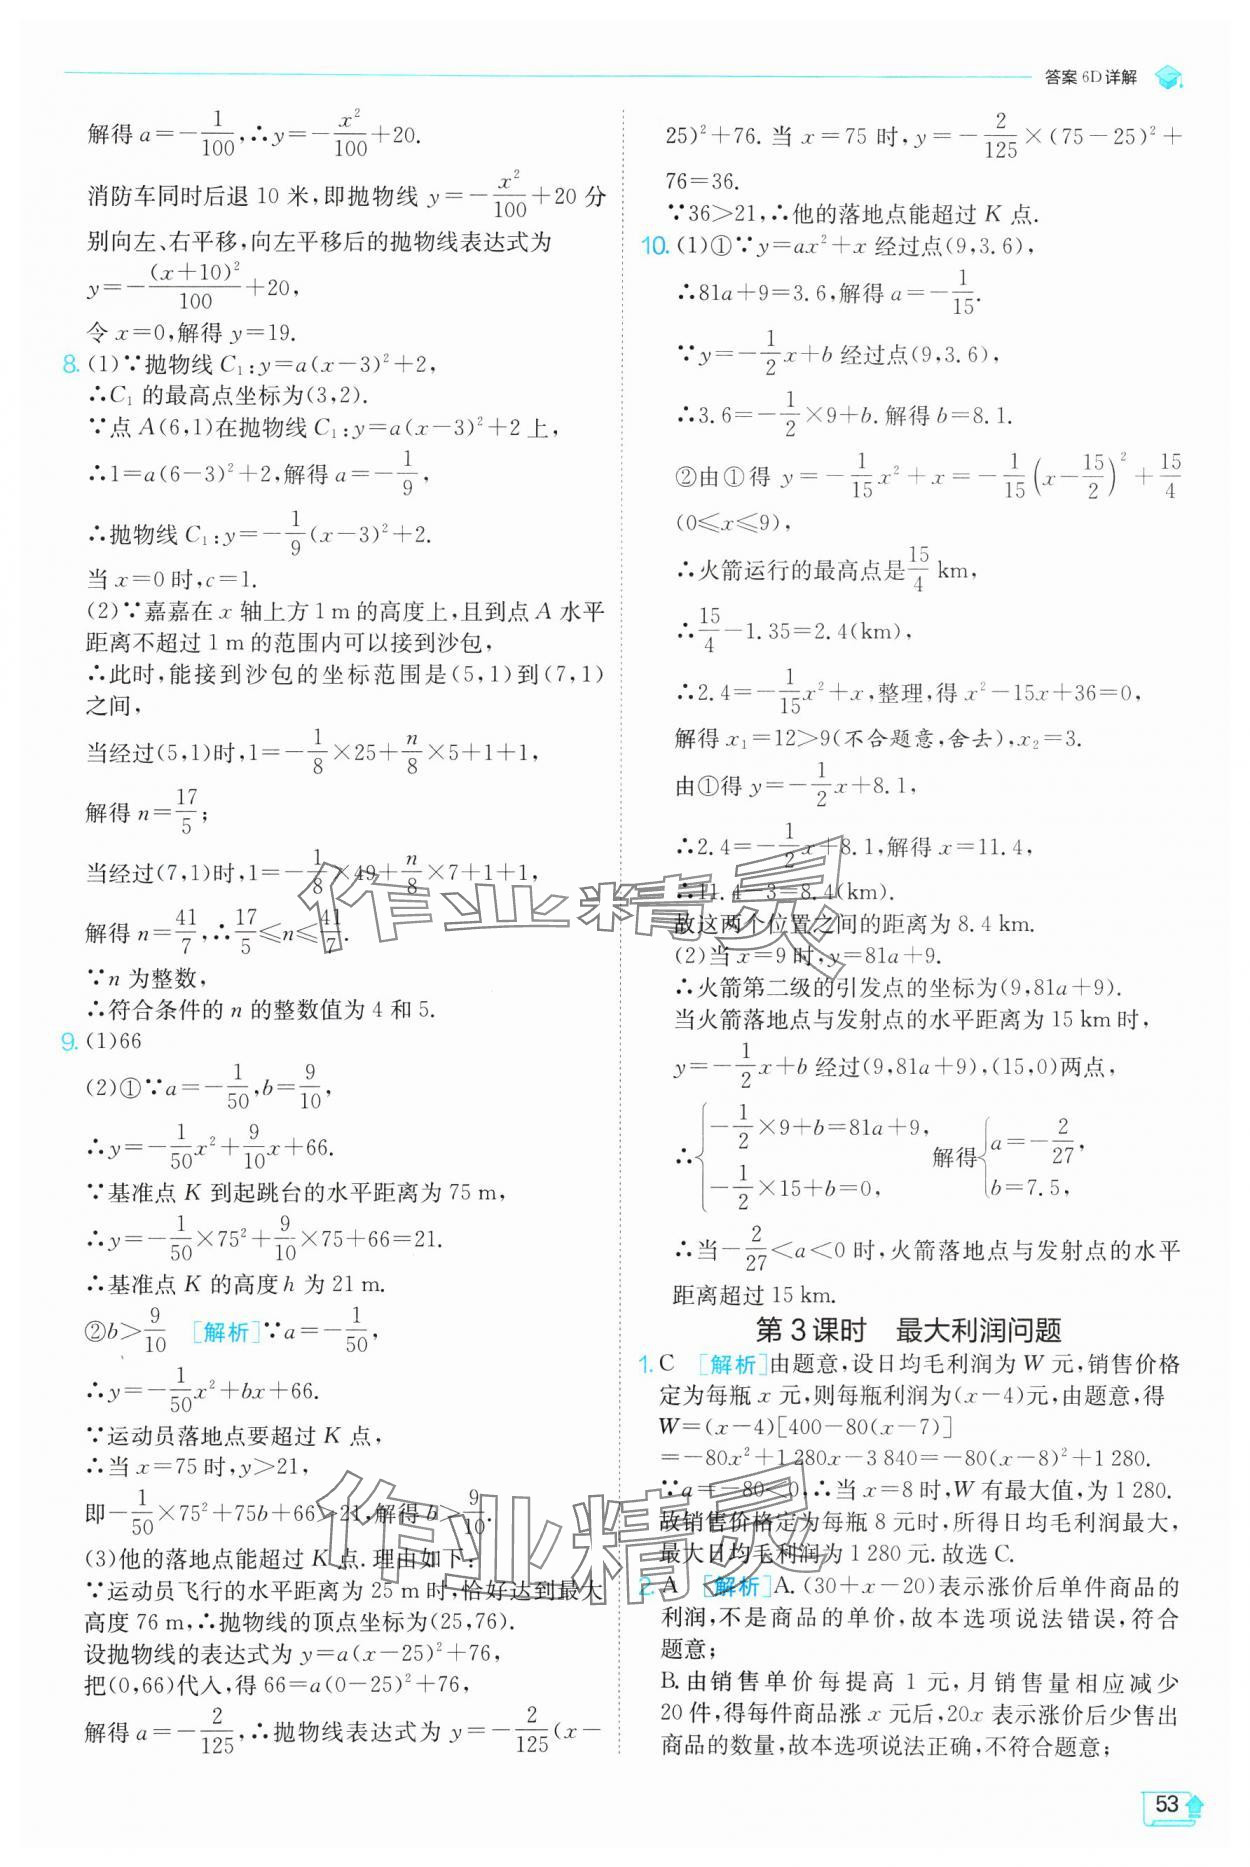 答案 6D 详解
解得 a=-1/100,∴y=-x²/100+20.
消防车同时后退 10 米,即抛物线 y=-x²/100+20 分
别向左、右平移,向左平移后的抛物线表达式为
y=-(x+10)²/100+20,
令 x=0,解得 y=19.
8. (1)∵抛物线 C₁:y=a(x-3)²+2,
∴C₁ 的最高点坐标为(3,2).
∵点 A(6,1)在抛物线 C₁:y=a(x-3)²+2 上,
∴1=a(6-3)²+2,解得 a=-1/9,
∴抛物线 C₁:y=-1/9(x-3)²+2.
当 x=0 时,c=1.
(2)∵嘉嘉在 x 轴上方 1 m 的高度上,且到点 A 水平
距离不超过 1 m 的范围内可以接到沙包,
∴此时,能接到沙包的坐标范围是(5,1)到(7,1)
之间,
当经过(5,1)时,1=-1/8×25+n/8×5+1+1,
解得 n=17/5;
当经过(7,1)时,1=-1/8×49+n/8×7+1+1,
解得 n=41/7,∴17/5≤n≤41/7.
∵n 为整数,
∴符合条件的 n 的整数值为 4 和 5.
9. (1)66
(2)①∵a=-1/50,b=9/10,
∴y=-1/50x²+9/10x+66.
∵基准点 K 到起跳台的水平距离为 75 m,
∴y=-1/50×75²+9/10×75+66=21.
∴基准点 K 的高度 h 为 21 m.
②b>9/10 [解析]∵a=-1/50,
∴y=-1/50x²+bx+66.
∵运动员落地点要超过 K 点,
∴当 x=75 时,y>21,
即-1/50×75²+75b+66>21,解得 b>9/10.
(3)他的落地点能超过 K 点. 理由如下:
∵运动员飞行的水平距离为 25 m 时,恰好达到最大
高度 76 m,∴抛物线的顶点坐标为(25,76).
设抛物线的表达式为 y=a(x-25)²+76,
把(0,66)代入,得 66=a(0-25)²+76,
解得 a=-2/125,∴抛物线表达式为 y=-2/125(x-
25)²+76. 当 x=75 时,y=-2/125×(75-25)²+
76=36.
∵36>21,∴他的落地点能超过 K 点.
10. (1)①∵y=ax²+x 经过点(9,3.6),
∴81a+9=3.6,解得 a=-1/15.
∵y=-1/2x+b 经过点(9,3.6),
∴3.6=-1/2×9+b. 解得 b=8.1.
②由①得 y=-1/15x²+x=-1/15(x-15/2)²+15/4
(0≤x≤9),
∴火箭运行的最高点是15/4 km,
∴15/4-1.35=2.4(km),
∴2.4=-1/15x²+x,整理,得 x²-15x+36=0,
解得 x₁=12>9(不合题意,舍去),x₂=3.
由①得 y=-1/2x+8.1,
∴2.4=-1/2x+8.1,解得 x=11.4,
∴11.4-3=8.4(km).
故这两个位置之间的距离为 8.4 km.
(2)当 x=9 时,y=81a+9.
∴火箭第二级的引发点的坐标为(9,81a+9).
当火箭落地点与发射点的水平距离为 15 km 时,
y=-1/2x+b 经过(9,81a+9),(15,0)两点,
∴{-1/2×9+b=81a+9, -1/2×15+b=0, 解得{a=-2/27, b=7.5,
∴当-2/27<a<0 时,火箭落地点与发射点的水平
距离超过 15 km.
第 3 课时 最大利润问题
1. C [解析]由题意,设日均毛利润为 W 元,销售价格
定为每瓶 x 元,则每瓶利润为(x-4)元,由题意,得
W=(x-4)[400-80(x-7)]
=-80x²+1 280x-3 840=-80(x-8)²+1 280.
∵a=-80<0,∴当 x=8 时,W 有最大值,为 1 280.
故销售价格定为每瓶 8 元时,所得日均毛利润最大,
最大日均毛利润为 1 280 元. 故选 C.
2. A [解析]A. (30+x-20)表示涨价后单件商品的
利润,不是商品的单价,故本选项说法错误,符合
题意;
B. 由销售单价每提高 1 元,月销售量相应减少
20 件,得每件商品涨 x 元后,20x 表示涨价后少售出
商品的数量,故本选项说法正确,不符合题意;
作业精灵
作业精灵
53